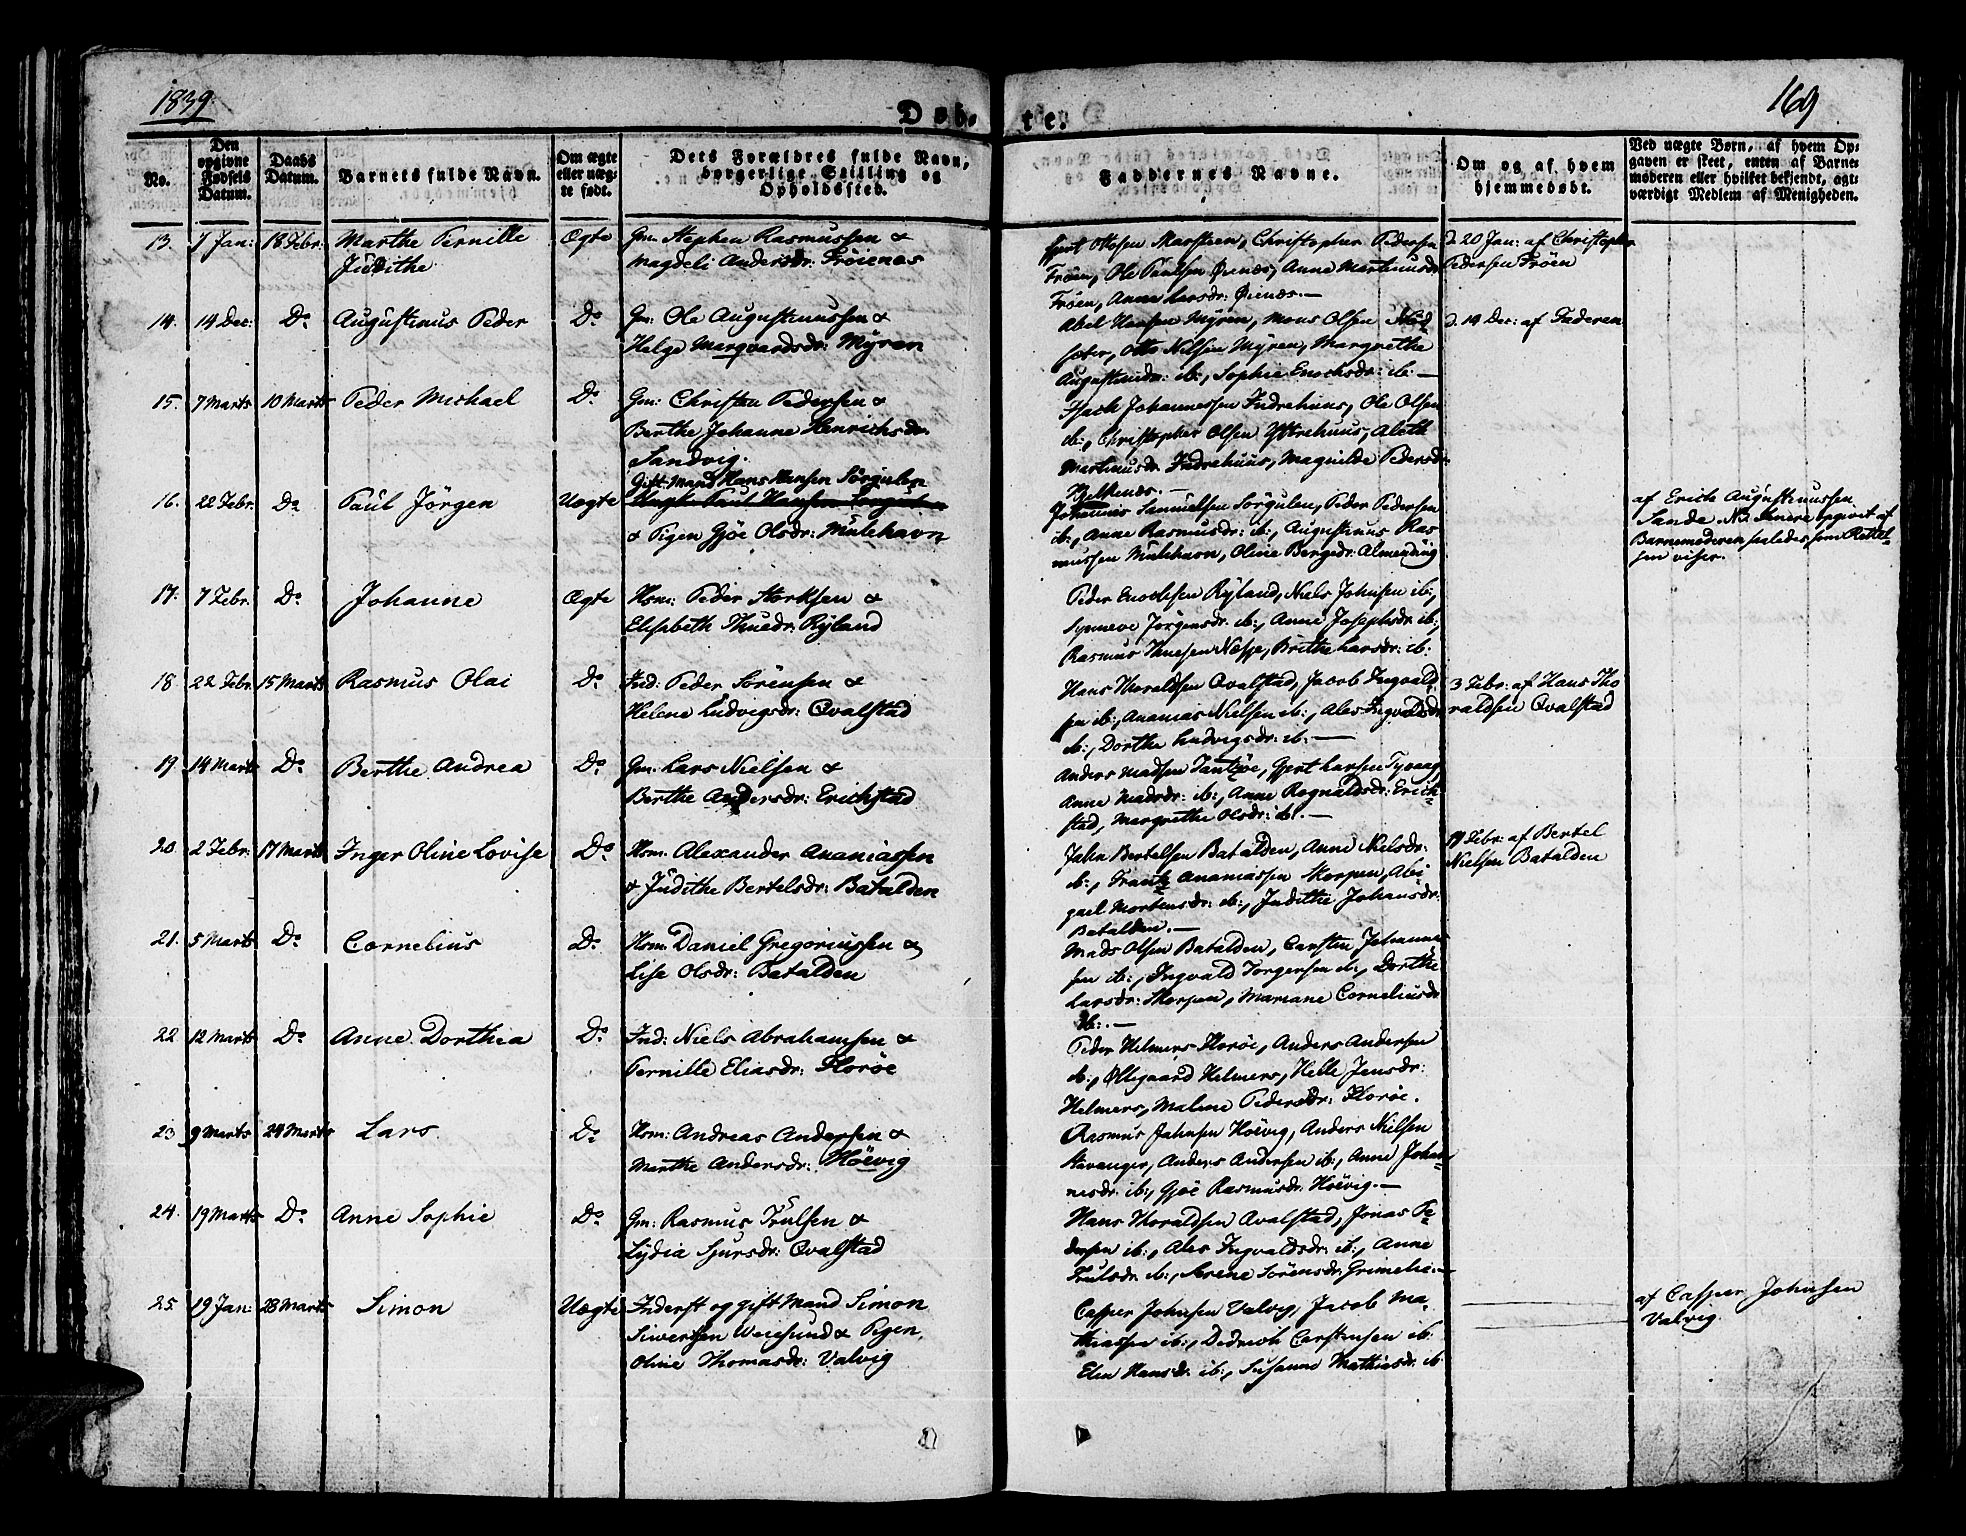 1839.
169
Døb-
te.
No.
Den opgivne Fødsels Datum.
Daabs Datum.
Barnets fulde Navn.
Om ægte eller uægte født.
Dets Forældres fulde Navn, borgerlige Stilling og Opholdssted.
Faddernes Navne.
Om og af hvem hjemmedøbt.
Ved uægte Børn, af hvem Opgaven er skeet, enten af Barnemoderen eller hvilket bekjendt, agtværdigt Medlem af Menigheden.
13. 7 Jan: 18 Febr: Marthe Pernille Ægte Gm: Stephen Rasmussen &
Judithe Magdeli Andersdr: Frøienæs
Gjert Ottosen Marsteen, Christopher Pedersen
Frøen, Ole Paulsen Øienæs, Anne Martinusdr
Frøen, Anne Larsdr: Øienæs.—
d. 20 Jan: af Christopher
Pedersen Frøen
14. 14 Dec: Do Augustinus Peder Do Gm: Ole Augustinussen &
Helge Marqvardsdr: Myren
Abel Hansen Myren, Mons Olsen
sæter, Otto Nilsen Myren, Margrethe
Augustinusdr: ib:, Sophie Enochsdr: ib:—
d. 14 Dec: af Faderen
15. 7 Marts 10 Marts Peder Michael Do Gm: Christen Pedersen &
Berthe Johanne Henrichsdr:
Sandvig.
Isach Johannessen Indrehuus, Ole Olsen
ib:, Christopher Olsen Yttrehuus, Aleth
Martinusdr: Indrehuus, Magnilde Pedersdr:
16. 22 Febr: Do Paul Jörgen Uægte
Gift Mand Hans Hansen Sörgulen
Ungk: Paul Hansen Sörgulen
& Pigen Gjöe Olsdr: Mulehavn
Johannis Samuelsen Sörgulen, Peder Pedersen
ib:, Anne Rasmusdr: ib:, Augustinus Ras
mussen Mulehavn, Oline Bergedr: Almending
af Erich Augustinussen
Sande. Nb. Senere opgivet af
Barnemoderen saaledes som Rettel-
sen viser.
17. 7 Febr: Do Johanne Ægte Hsm: Peder Storksen &
Elisabeth Thuedr: Ryland
Peder Enochsen Ryland, Niels Johnsen ib:,
Synneve Jörgensdr: ib:, Anne Josephsdr: ib:,
Rasmus Thuesen Næsse, Brithe Larsdr: ib:
18. 22 Febr: 15 Marts Rasmus Olai Do Ind: Peder Sörensen &
Helene Ludvigsdr: Qvalstad
Hans Thoraldsen Qvalstad, Jacob Ingvald
sen ib:, Ananias Nielsen ib:, Ales Ingvaldsdr:
ib:, Dorthe Ludvigsdr: ib:—
3 Febr: af Hans Tho
raldsen Qvalstad
19. 14 Marts Do Berthe Andrea Do Gm: Lars Nielsen &
Berthe Andersdr: Erichstad
Anders Madsen Tantzöe, Gjert Larsen
Anne Madsdr: ib:, Anne Rognaldsdr: Erich-
stad, Margrethe Olsdr: ib:.—
20. 2 Febr: 17 Marts Inger Oline Lovise Do Hsm: Alexander Ananiassen
& Judithe Bertelsdr: Batalden
Jahn Bertelsen Batalden, Anne Nielsdr:
ib:, Frantz Ananiassen Skorpen, Abi
gael Mortensdr: ib:, Judithe Johansdr:
Batalden.—
19 Febr: af Bertel
Nielsen Batalden
21. 5 Marts Do Cornelius Do Hsm: Daniel Gregoriussen &
Lise Olsdr: Batalden
Mads Olsen Batalden, Carsten Johannes
sen ib:, Ingvald Torgersen ib:, Dorthe
Larsdr: Skorpen, Mariane Corneliusdr
ib:.—
22. 12 Marts Do Anne Dorthea Do Ind: Niels Abrahamsen &
Pernille Eliasdr: Florøe
Peder Helmers Florøe, Anders Andersen
ib:, Øllegaard Helmers, Helle Jensdr:
Helmers, Malene Pedersdr: Florøe.
23. 9 Marts 24 Marts Lars Do Hsm: Andreas Andersen &
Marthe Andersdr: Høevig
Rasmus Jahnsen Høevig, Anders Nielsen
Stavanger, Anders Andersen ib:, Anne Johan-
nesdr: ib:, Gjöe Rasmusdr: Höevig.—
24. 19 Marts Do Anne Sophie Do Gm: Rasmus Trulsen &
Lydia Sjursdr: Qvalstad
Hans Thoraldsen Qvalstad, Jonas Pe-
dersen ib:, Ales Ingvaldsdr: ib:, Anne
Trulsdr: ib:, Serene Sörensdr: Grimelie.—
25. 19 Jan: 28 Marts Simon Uægte Inderst og gift Mand Simon
Siversen Weiesund & Pigen
Oline Thomasdr: Valvig
Casper Johnsen Valvig, Jacob Ma-
thiassen ib:, Dedrich Carstensen ib:
Elen Hansdr: ib:, Susanne Mathiasdr: ib:
af Casper Johnsen
Valvig.